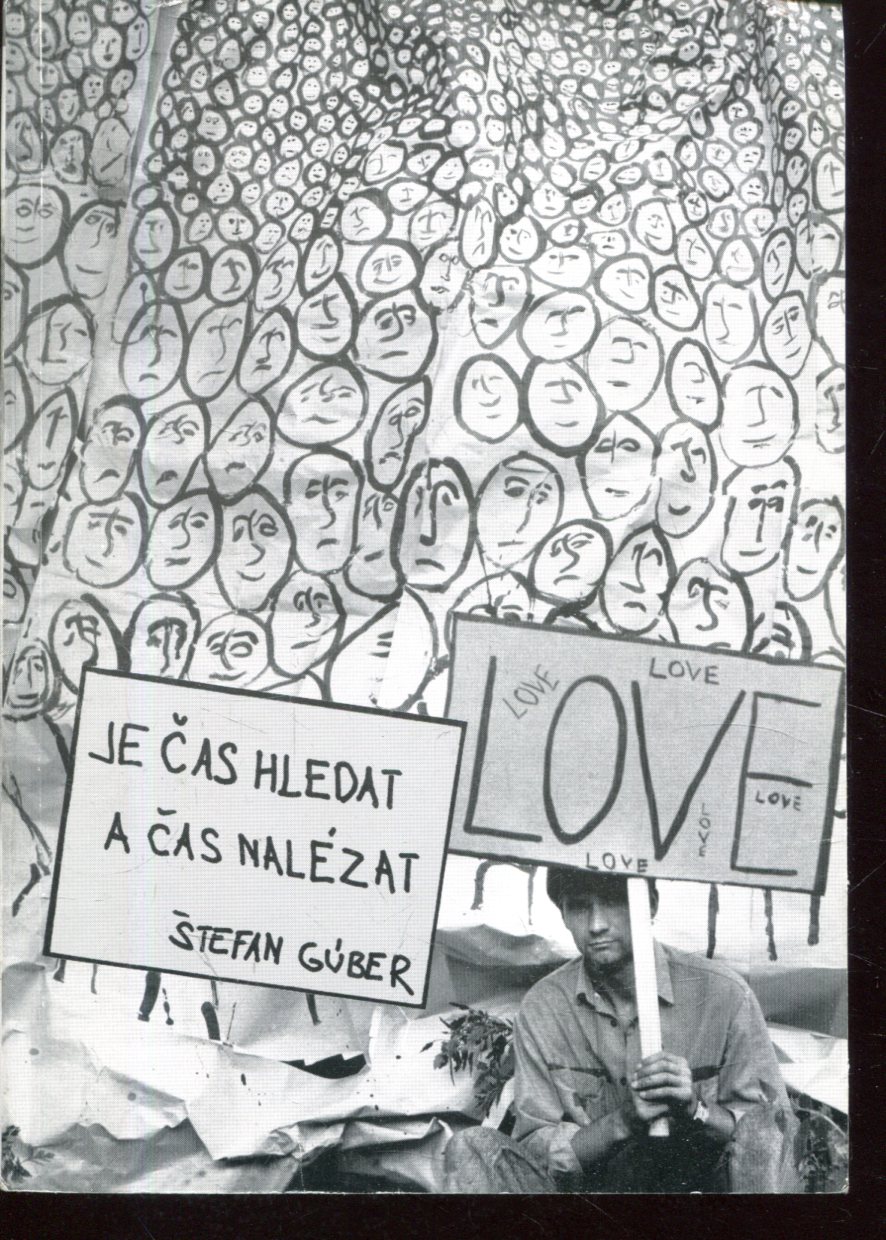 JE ČAS HLEDAT
A ČAS NALÉZAT
ŠTEFAN GÚBER
LOVE
LOVE
LOVE
LOVE
LOVE
LOVE